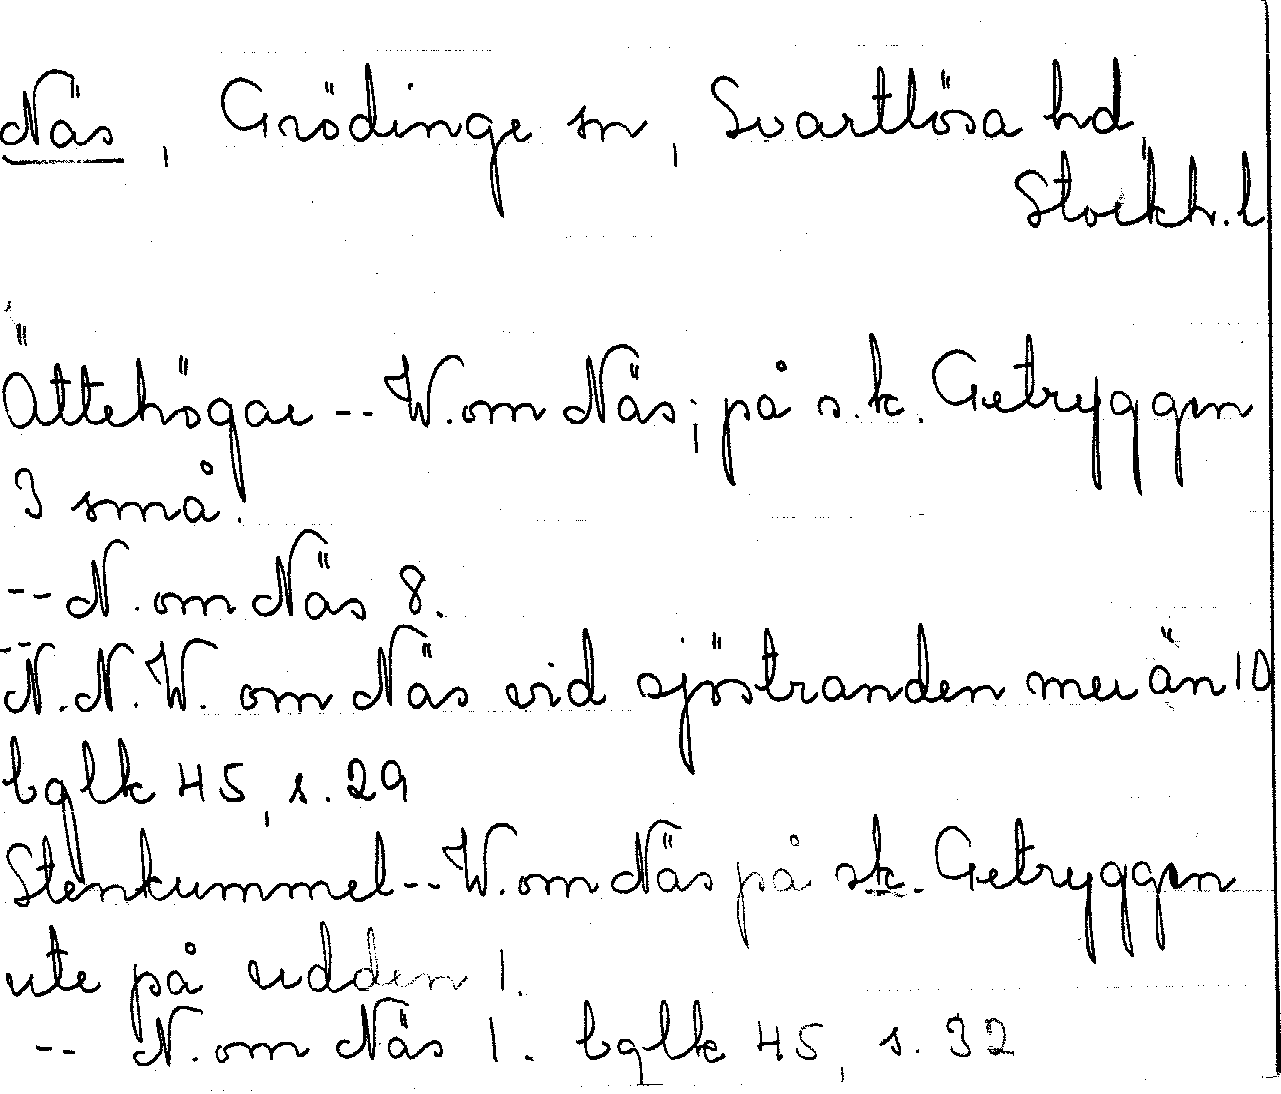 Näs, Grödinge sn, Svartlösa hd,
Stockh. l
Ättehögar -- W. om Näs; på s.k. Getryggen
3 små.
-- N. om Näs 8.
-- N.N.W. om Näs vid sjöstranden mer än 10
bglk 45, s. 29
Stenkummel -- W. om Näs på sk. Getryggen
ute på udden 1.
-- N. om Näs 1. bglk 45, s. 32